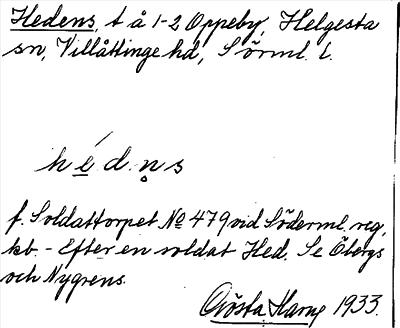 Hedens, t å 1-2 Oppeby, Helgesta
sn, Villåttinge hd, Sörml. l.
hédṇs
f. Soldattorpet No 479 vid Söderml. reg,
kb. - Efter en soldat Hed. Se Öbergs
och Nygrens.
Gösta Harng 1933.